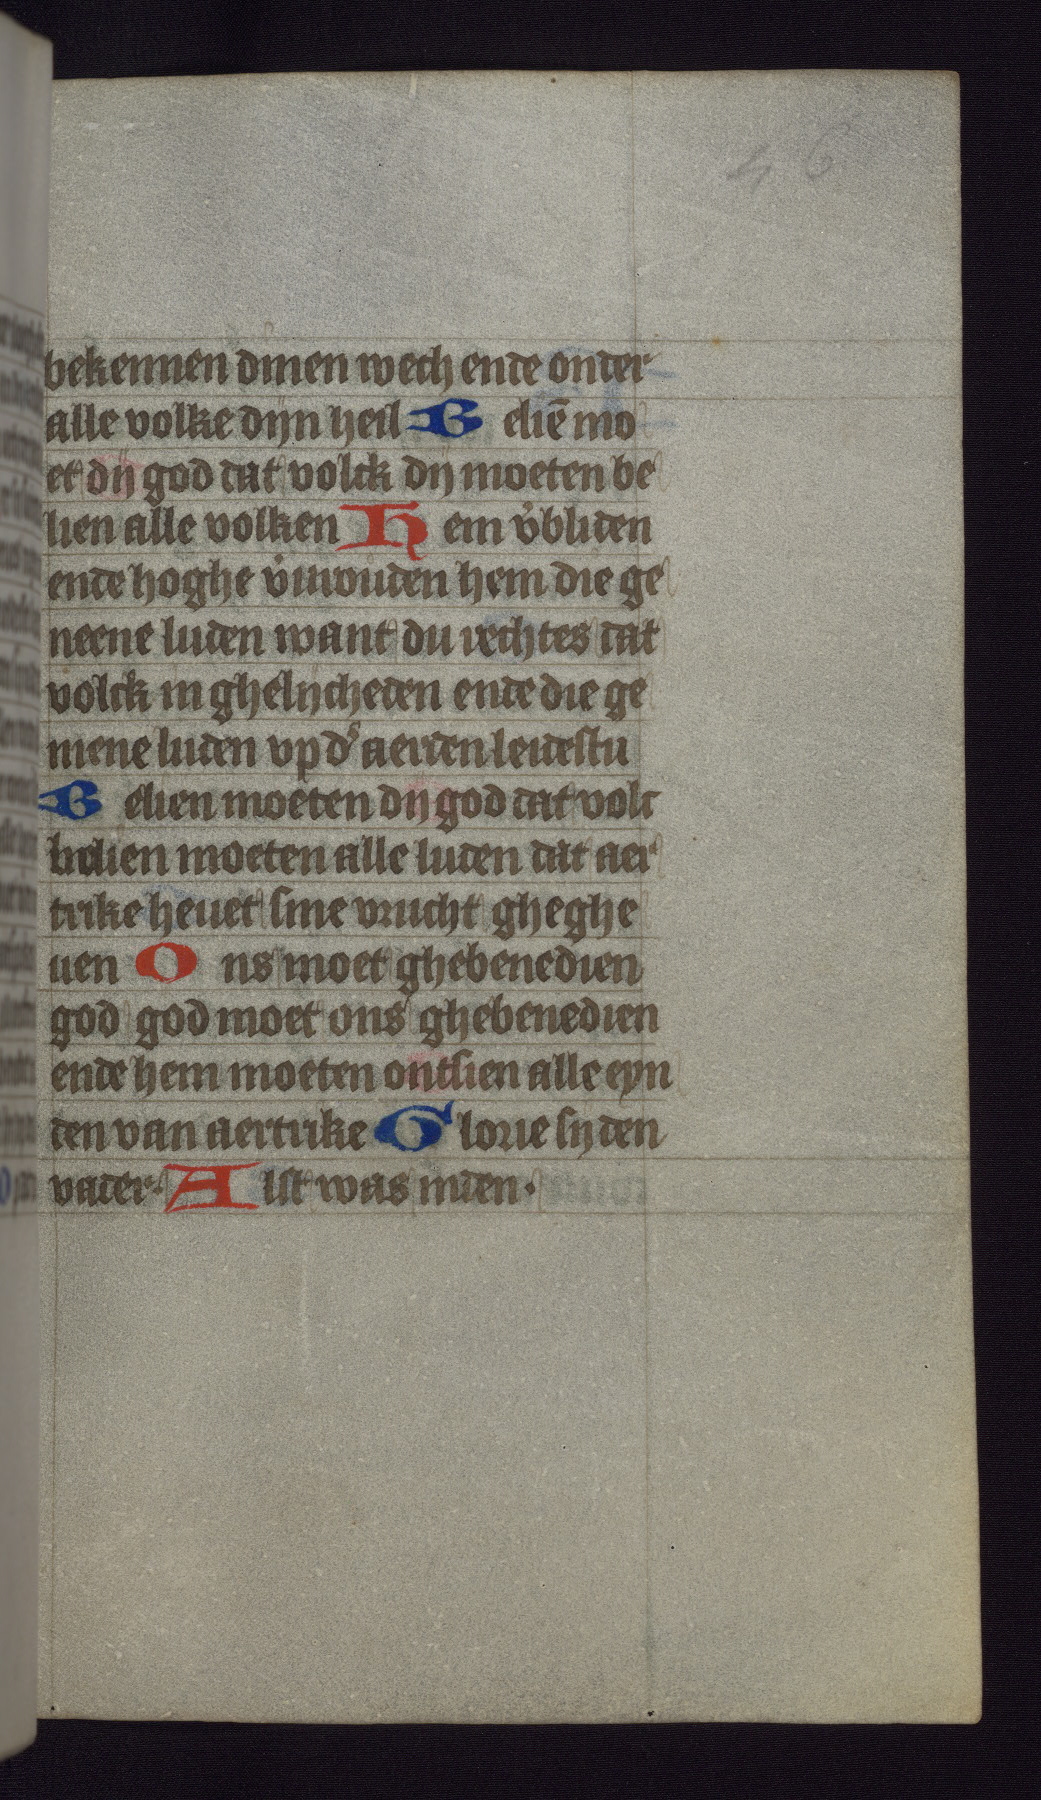 46
bekennen dinen wech ende onder
alle volke dijn heil Beliē mo
et dij god dat volck dij moeten be
lien alle volken Hem v̓bliden
ende hoghe v̓invuden hem die ge
neene luden want du rechtes dat
volck in ghelijcheden ende die ge
mene luden vp d̓ aerden leuestu
Belien moeten dij god dat volc
belien moeten alle luden dat aer
trike heuet sine vrucht gheghe
uen Ons moet ghebenedien
god god moet ons ghebenedien
ende hem moeten ontsien alle eyn
den van aertrike Glorie si den
vader. Alst was inden.